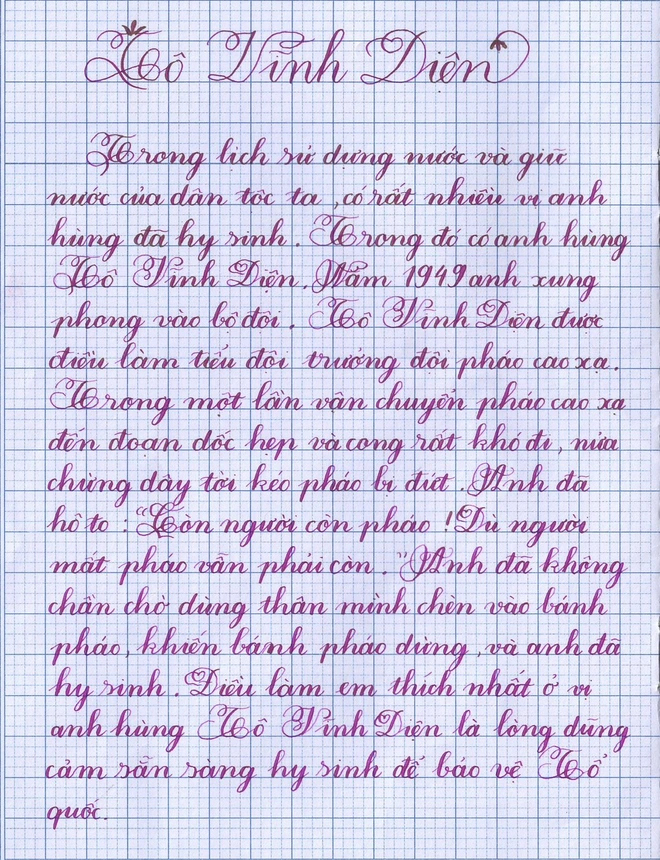 Tô Vĩnh Diện
Trong lịch sử dựng nước và giữ
nước của dân tộc ta, có rất nhiều vị anh
hùng đã hy sinh. Trong đó có anh hùng
Tô Vĩnh Diện. Năm 1949 anh xung
phong vào bộ đội. Tô Vĩnh Diện được
điều làm tiểu đội trưởng đội pháo cao xạ.
Trong một lần vận chuyển pháo cao xạ
đến đoạn dốc hẹp và cong rất khó đi, nửa
chừng dây tời kéo pháo bị đứt. Anh đã
hô to: "Còn người còn pháo! Dù người
mất pháo vẫn phải còn." Anh đã không
chần chờ dùng thân mình chèn vào bánh
pháo, khiến bánh pháo dừng, và anh đã
hy sinh. Điều làm em thích nhất ở vị
anh hùng Tô Vĩnh Diện là lòng dũng
cảm sẵn sàng hy sinh để bảo vệ Tổ
quốc.